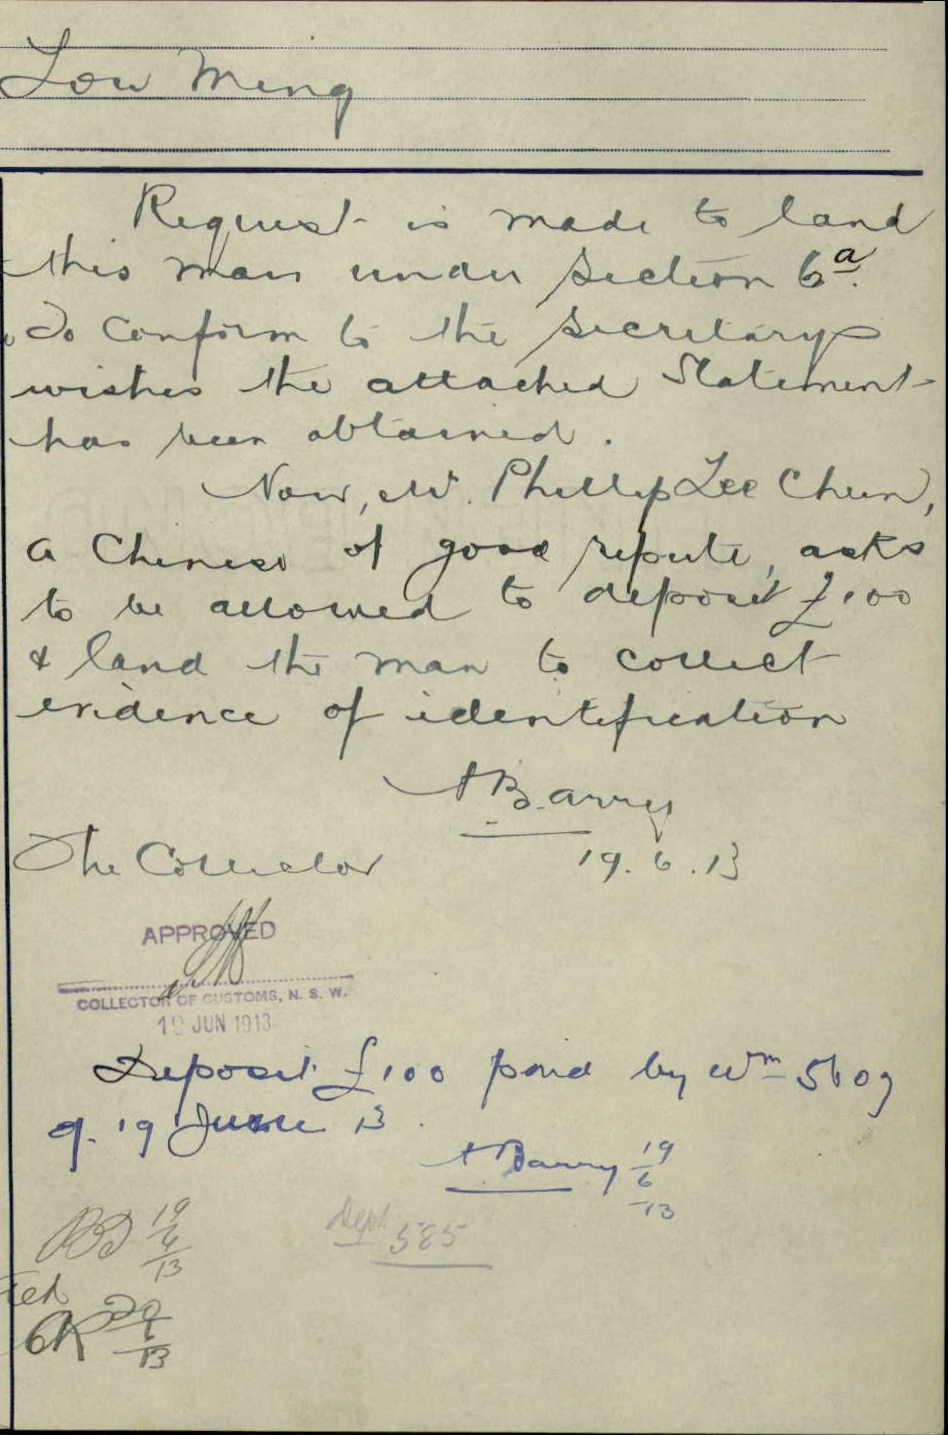 Low Ming
Request is made to land
this man under Section 6a.
To conform to the Secretary's
wishes the attached Statement
has been obtained.
Now, Mr. Phillip Lee Chun,
a Chinese of good repute, asks
to be allowed to deposit £100
& land the man to collect
evidence of identification
ABarry
19.6.13
The Collector
APPROVED
COLLECTOR OF CUSTOMS, N. S. W.
19 JUN 1913
Deposit £100 paid by Wm
19 June 13
ABarry 19/6/13
19/6/13
Dept 585
20/6/13